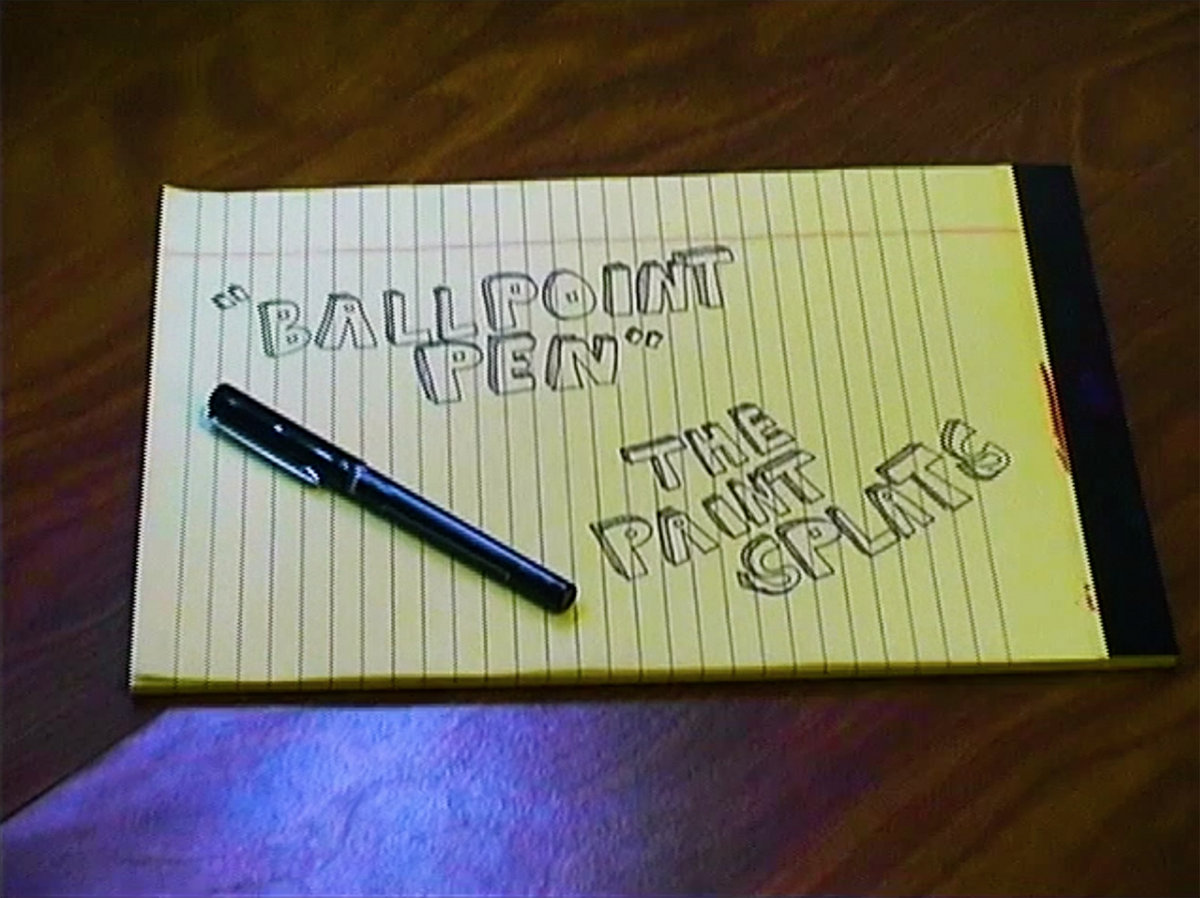 "BALLPOINT
PEN"
THE
PAINT
SPLATS